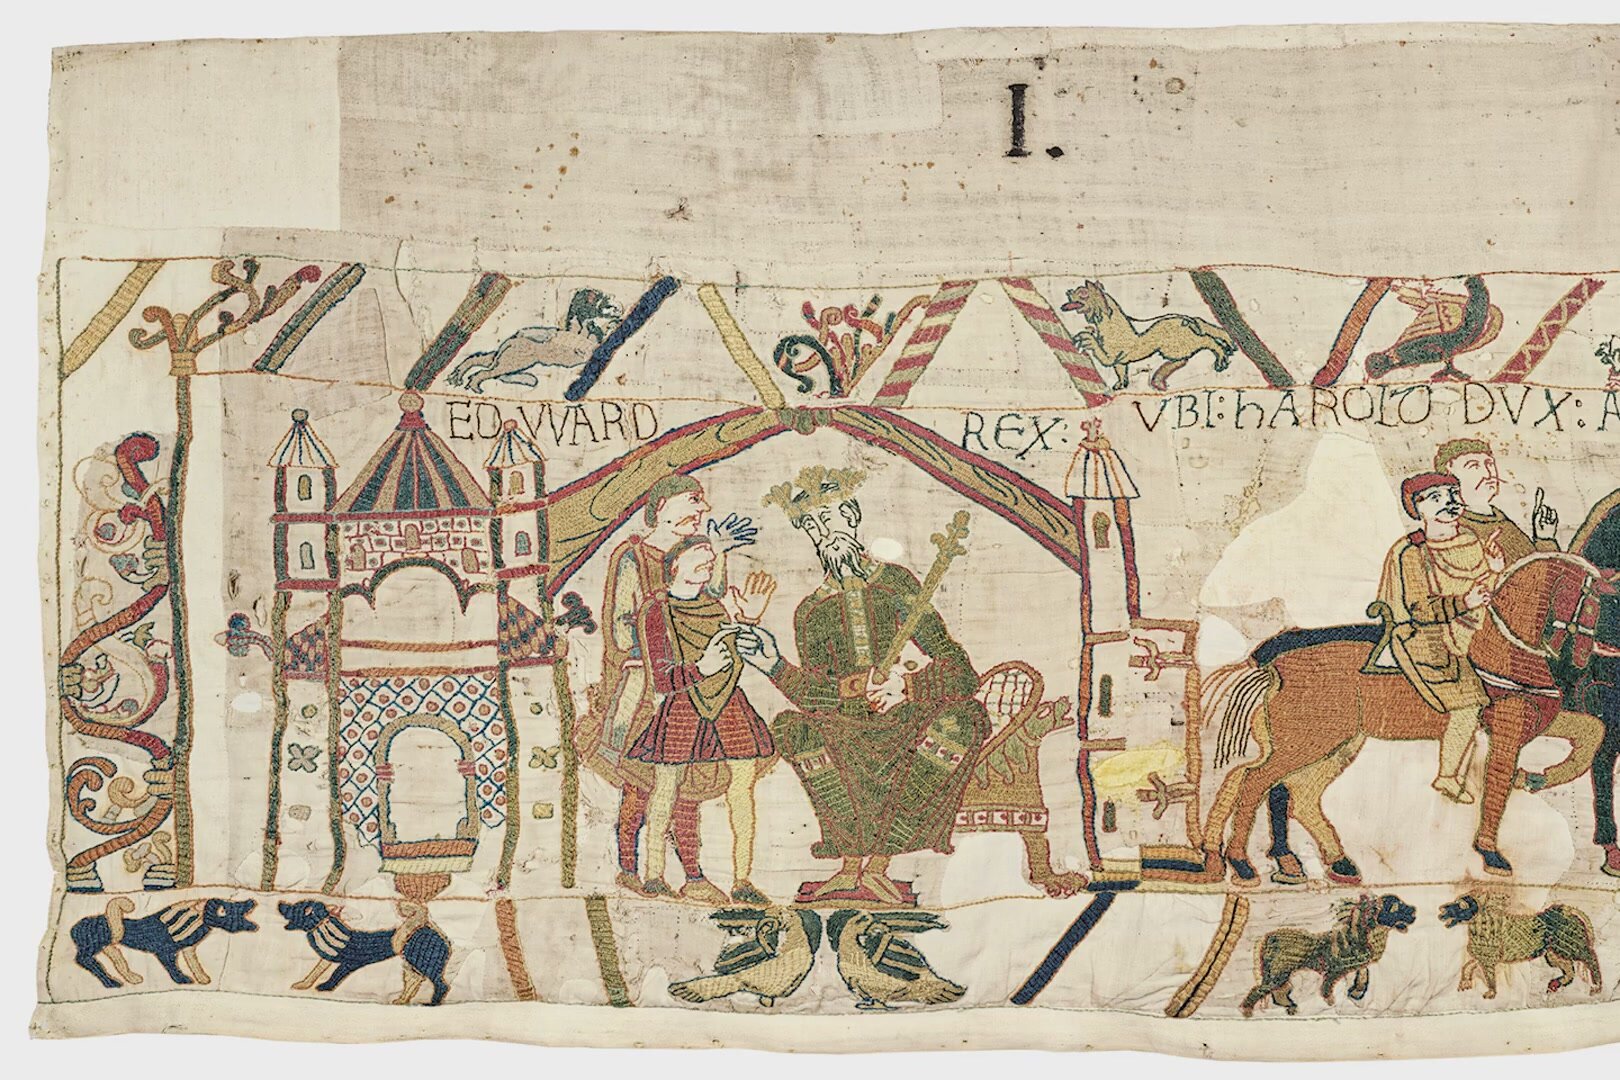 I.
EDVVARD REX: VBI: hAROLD DVX: A